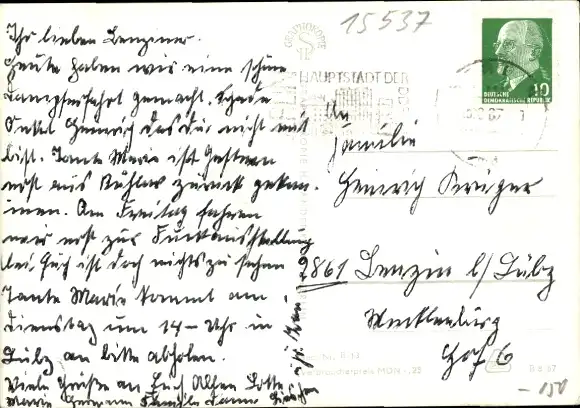 15537
Ihr lieben Benziner.
Heute haben wir eine schöne
Dampferfahrt gemacht. Schade
Onkel Heinrich das Du nicht mit
bist. Tante Marie ist gestern
erst aus zurück gekom-
men. Am Freitag fahren
wir erst zur Funkausstellung
bei Euch ist doch nichts zu sehen
Tante Marie kommt am
Dienstag um 14 Uhr in
Lübz an bitte abholen.
Viele Grüße an Euch Allen Lotte
Marie Hermann Familie
HAUPTSTADT DER
DDR
10
DEUTSCHE
DEMOKRATISCHE REPUBLIK
An
Familie
Heinrich Krüger
2861 Benzin b/ Lübz
Mecklenburg
Hof 6
-150